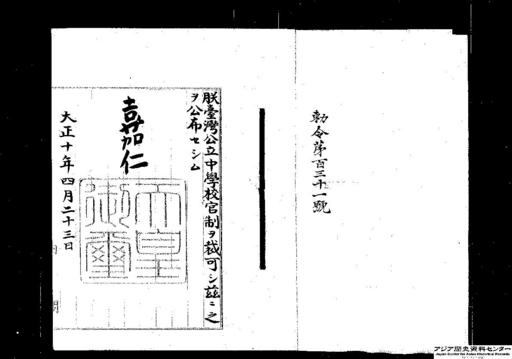 勅令第百三十一號
朕臺灣公立中學校官制ヲ裁可シ茲ニ之
ヲ公布セシム
嘉仁
天皇
御璽
大正十年四月二十三日
アジア歴史資料センター
Japan Center for Asian Historical Records